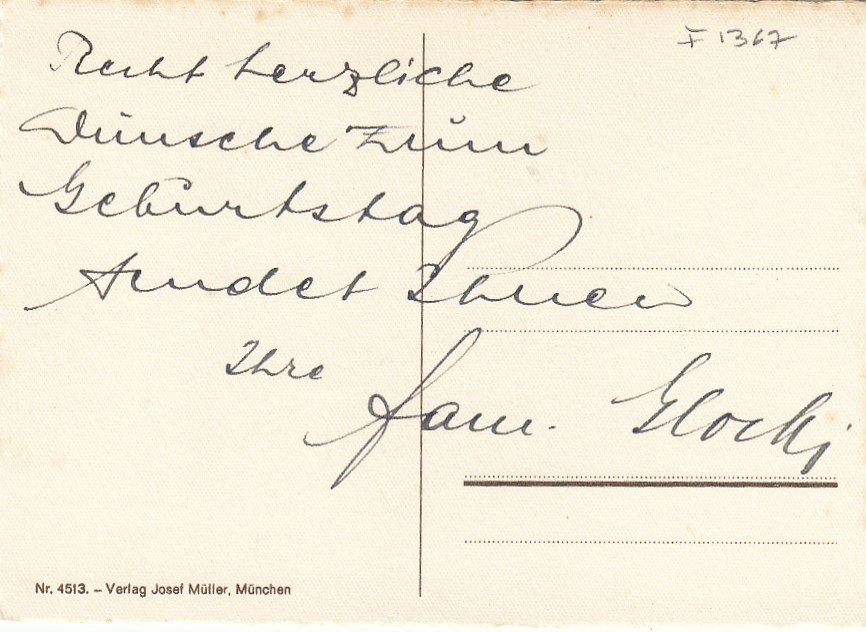 I 1367
Recht herzliche
Wünsche zum
Geburtstag
sendet Ihnen
Ihre
Fam.
Nr. 4513. – Verlag Josef Müller, München